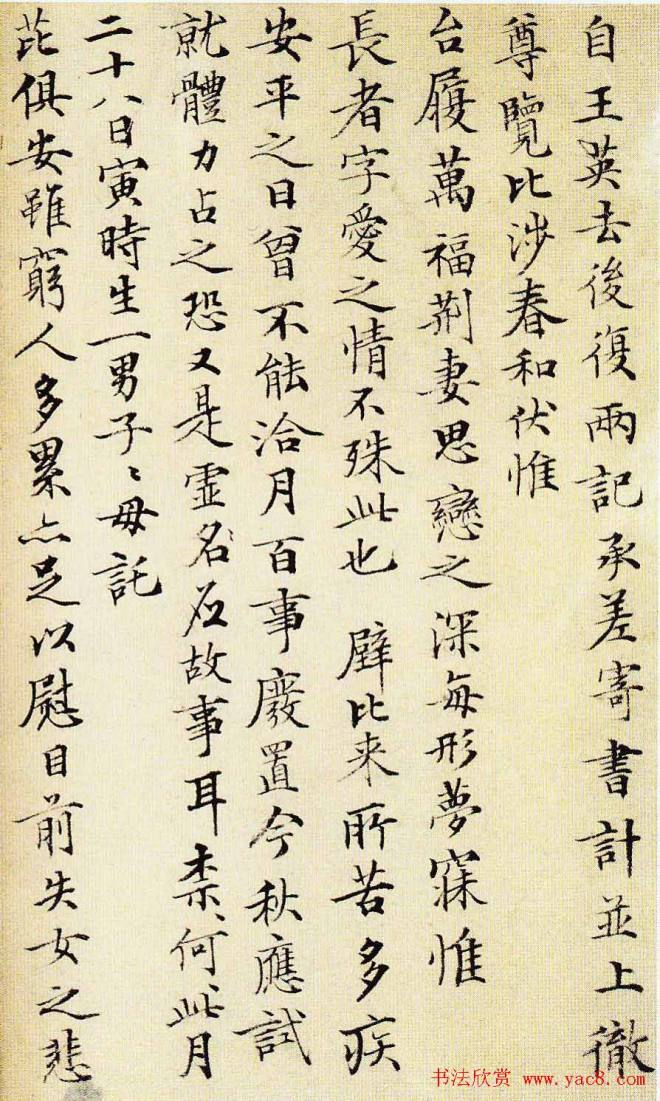 自王英去後復兩記承差寄書計並上徹
尊覽比涉春和伏惟
台履萬福荊妻思戀之深每形夢寐惟
長者字愛之情不殊此也 壁比来所苦多疾
安平之日曾不能洽月百事廢置今秋應試
就體力占之恐又是虛名應故事耳柰、何、此月
二十八日寅時生一男子、母託
芘俱安雖窮人多累亦足以慰目前失女之悲
书法欣赏 www.yac8.com